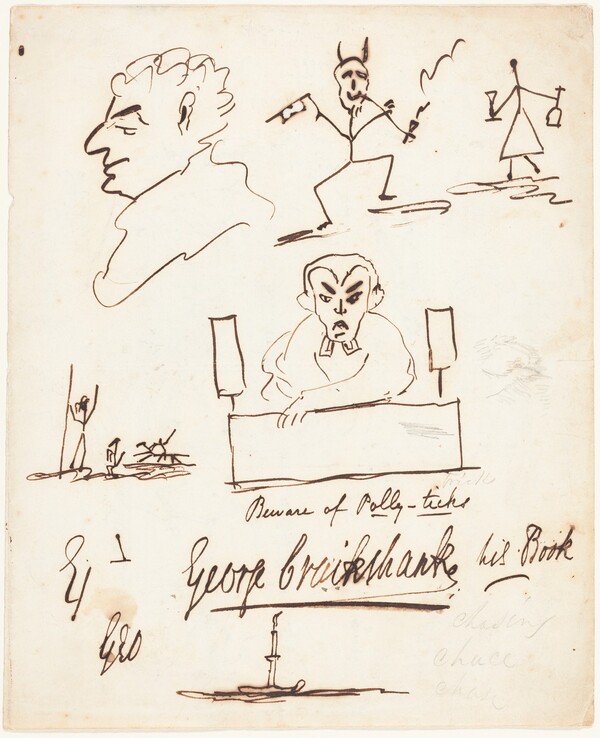 Beware of Polly-ticks
George Cruikshank his Book
Geo
chasing
chace
chase